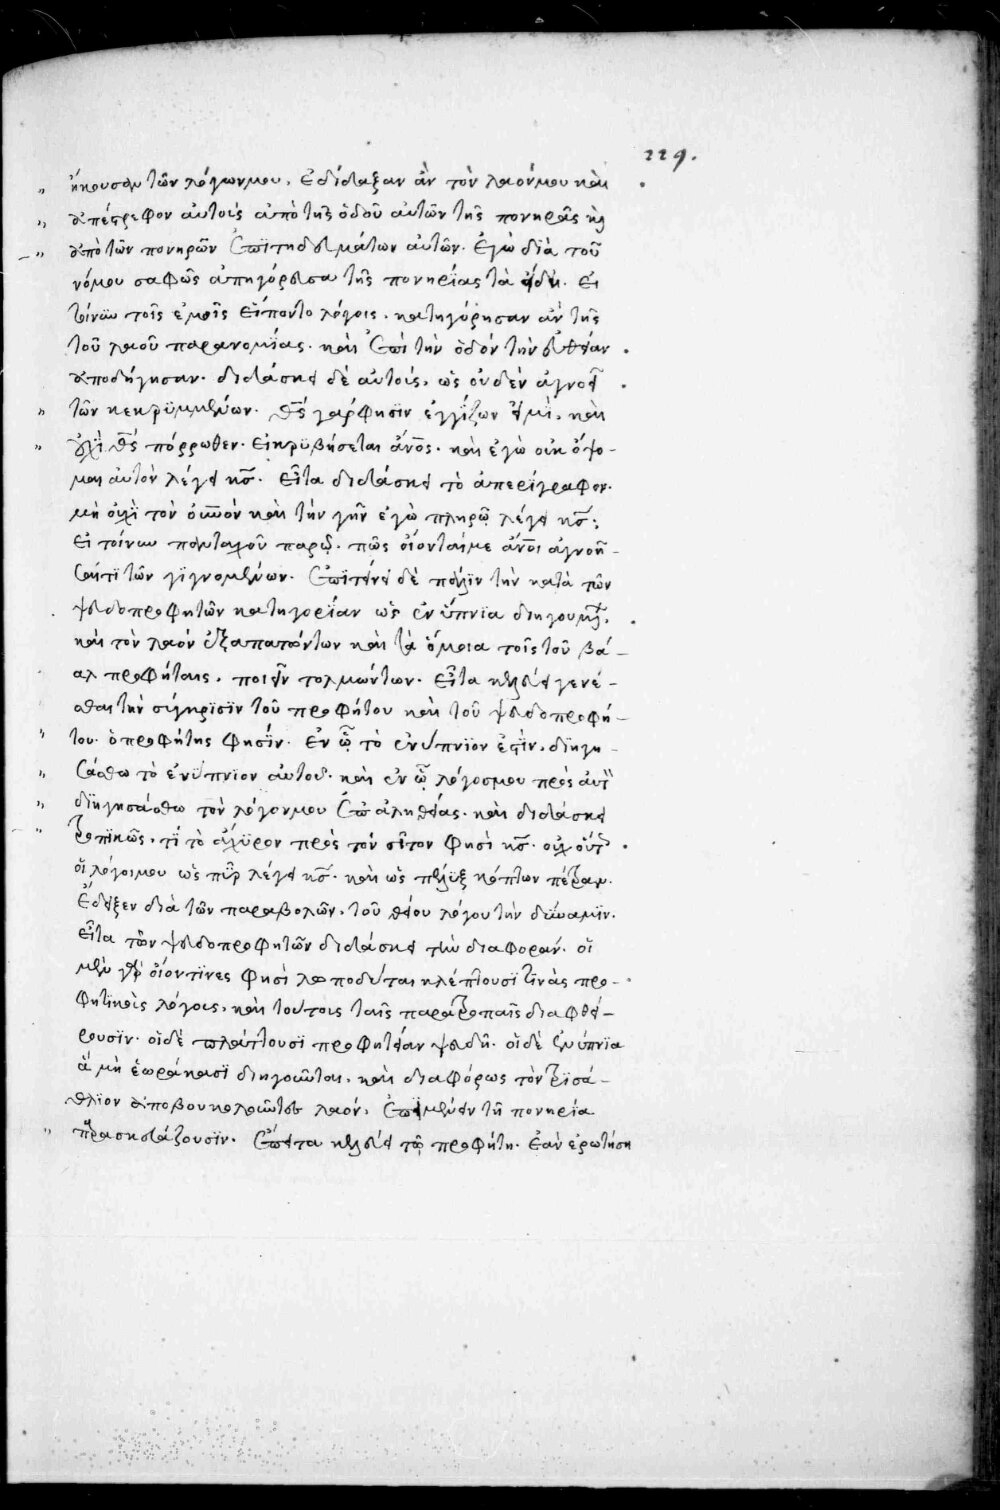 229.
ἤκουσαν τῶν λόγων μου, ἐδίδαξαν ἂν τὸν λαόν μου καὶ
ἀπέστρεφον αὐτοὺς ἀπὸ τῆς ὁδοῦ αὐτῶν τῆς πονηρᾶς κὴ
ἀπὸ τῶν πονηρῶν ἐπιτηδευμάτων αὐτῶν. Ἐγὼ διὰ τοῦ
νόμου σαφῶς ἀπηγόρευσα τῆς πονηρίας τὰ εἴδη. Εἰ
τοίνυν τοῖς ἐμοῖς εἵποντο λόγοις, κατηγόρησαν ἂν τῆς
τοῦ λαοῦ παρανομίας. καὶ ἐπὶ τὴν ὁδὸν τὴν εὐθεῖαν
ἀποδήγησαν. διδάσκει δὲ αὐτούς, ὡς οὐδὲν ἀγνοεῖ
τῶν κεκρυμμένων. θς γάρ φησϊν ἐγγίζων εἰμὶ, καὶ
οὐχὶ θς πόρρωθεν. εἰ κρυβήσεται ἄνος. καὶ ἐγὼ οὐκ ὄψο-
μαι αὐτὸν λέγει κς. Εἶτα διδάσκει τὸ ἀπερίγραφον.
μὴ οὐχὶ τὸν οὐνὸν καὶ τὴν γῆν ἐγὼ πληρῶ λέγει κς;
Εἰ τοίνυν πανταχοῦ παρῶ. πῶς οἴονταί με ἄνοι ἀγνοεῖν
τι τῶν γιγνομένων. Ἐπιτείνει δὲ πάλιν τὴν κατὰ τῶν
ψευδοπροφητῶν κατηγορίαν ὡς ἐνύπνϊα διηγουμέ,
καὶ τὸν λαὸν ἐξαπατώντων καὶ τὰ ὅμοια τοῖς τοῦ βά-
αλ προφήταις, ποιεῖν τολμώντων. Εἶτα κελεύει γενέ-
σθαι τὴν σύγκρισϊν τοῦ προφήτου καὶ τοῦ ψευδοπροφή-
του. ὁ προφήτης φησίν. Ἐν ᾧ τὸ ἐνύπνϊον ἐστϊν, διηγη-
σάσθω τὸ ἐνύπνϊον αὐτοῦ. καὶ ἐν ᾧ λόγος μου πρὸς αὐτὸ
διηγησάσθω τὸν λόγον μου ἐπ ἀληθείας. καὶ διδάσκει
τροπικῶς, τί τὸ ἄχϋρον πρὸς τὸν σῖτον φησὶ κς. οὐχ οὕτ
οἱ λόγοι μου ὡς πῦρ λέγει κς. καὶ ὡς πέλυξ κόπτων πέτραν.
Ἔδειξεν διὰ τῶν παραβολῶν, τοῦ θείου λόγου τὴν δύναμϊν.
Εἶτα τῶν ψευδοπροφητῶν διδάσκει τὴν διαφοράν. οἱ
μὲν γὰρ οἷον τϊνες φησὶ λωποδύται κλέπτουσϊ τινὰς προ-
φητικοὺς λόγους, καὶ τούτοις ταῖς παρατροπαῖς διαφθεί-
ρουσϊν. οἱ δὲ πλάττουσϊ προφητείαν ψευδῆ. οἱ δὲ ἐνύπνϊα
ἃ μὴ ἑωράκασϊ διηγοῦνται, καὶ διαφόρως τὸν τρϊσά-
θλϊον ἀποβουκολοῦντες λαόν, ἐπιμένειν τῇ πονηρία
παρασκευάζουσϊν. Ἔπειτα κελεύει τῷ προφήτῃ. Ἐὰν ἐρωτήση